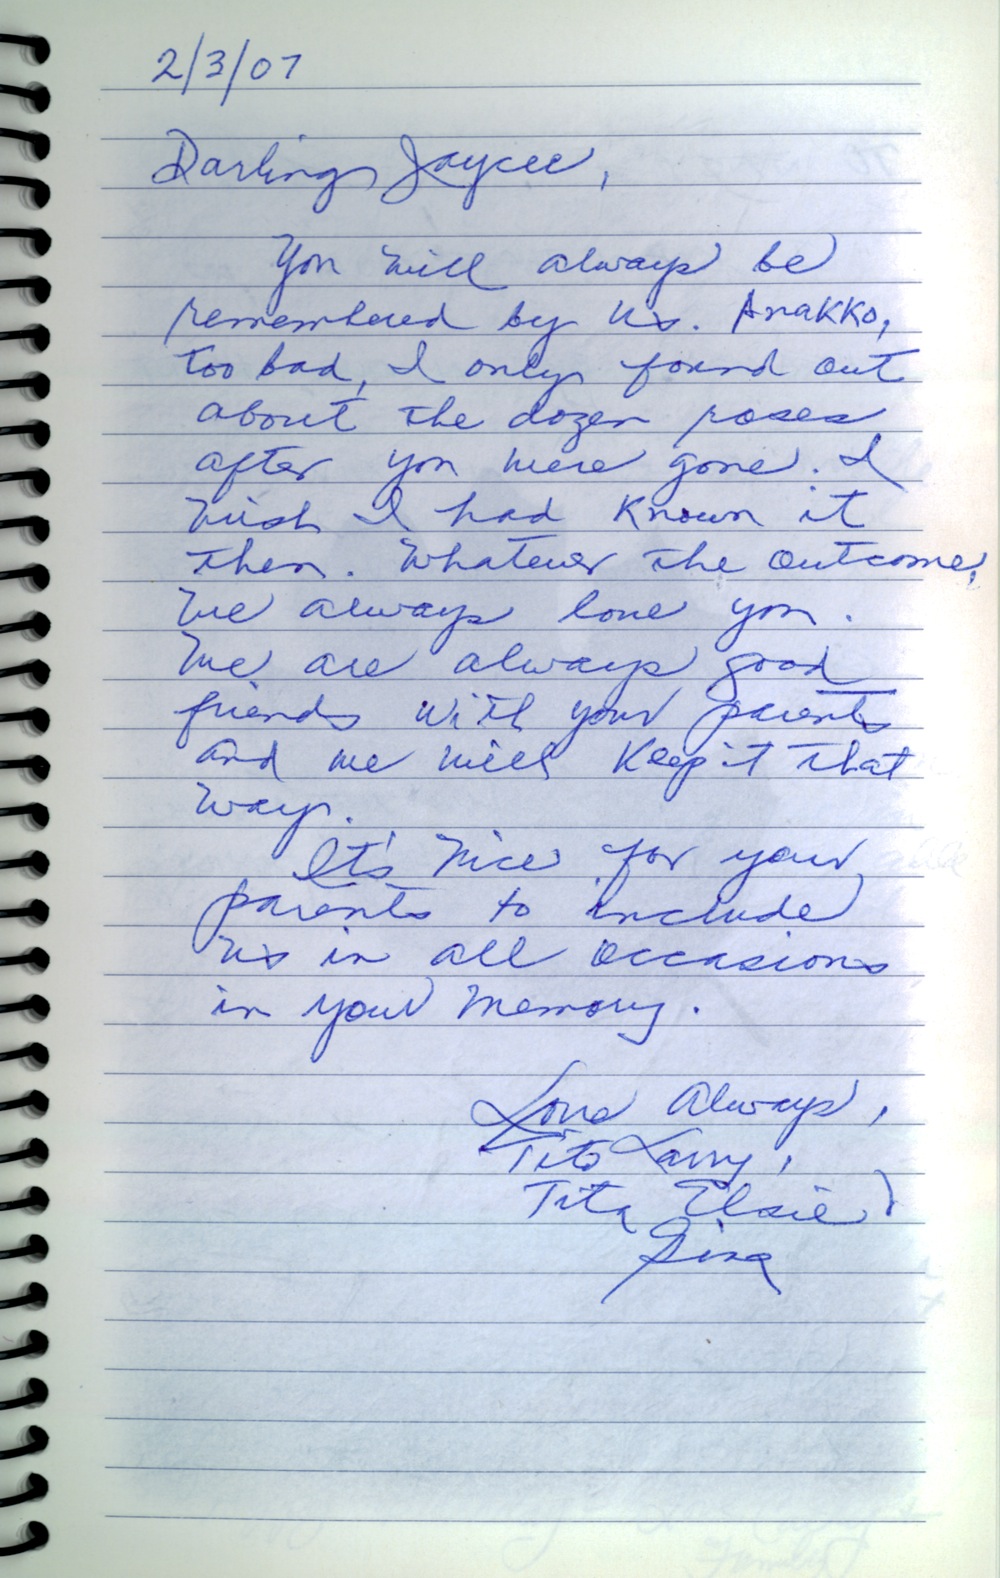 2/3/07
Darling Jaycee,
You will always be
remembered by us. Anakko,
too bad, I only found out
about the dozen roses
after you were gone. I
wish I had known it
then. Whatever the outcome,
we always love you.
We are always good
friends with your parents
and we will keep it that
way.
It's nice for your
parents to include
us in all occasions
in your memory.
Love Always,
Tito Larry,
Tita Elsie